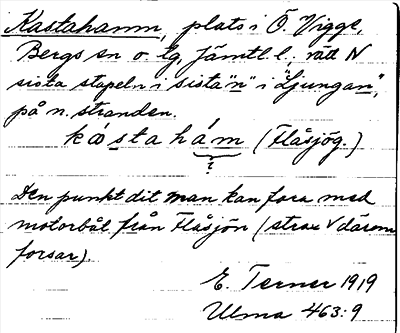 Kastahamn, plats i Ö. Vigge,
Bergs sn o. tg, Jämtl. l., rätt N
sista stapeln i sista "n" i "Ljungan",
på n. stranden.
kåsta hám (Flåsjög.)
?
Den punkt dit man kan fara med
motorbåt från Flåsjön (strax V därom
forsar).
E. Terner 1919
Ulma 463:9